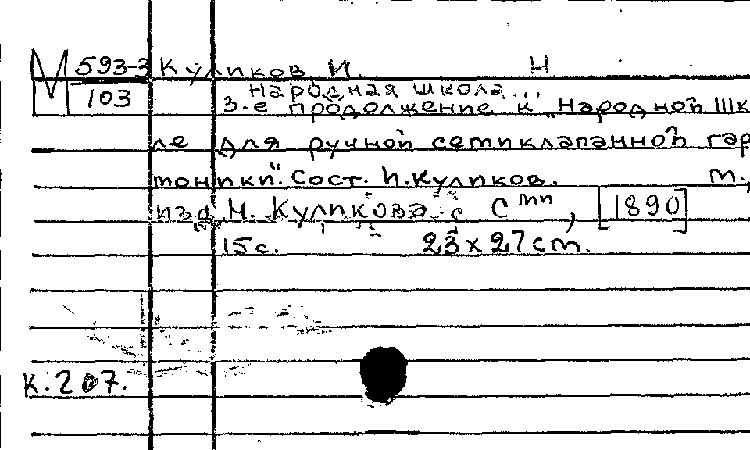 М 593-3 Куликов И. Н
103 Народная школа...
3-е продолжение к „Народной Шко
ле для ручной семиклапанной гар
моники". Сост. И. Куликов. М.,
изд. Н. Куликова, с С тип, [1890]
15 с. 23 х 27 см.
К. 207.